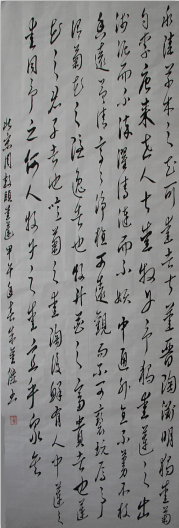 水陸草木之花可愛者甚蕃晉陶淵明獨愛菊
自李唐來世人甚愛牡丹予獨愛蓮之出
淤泥而不染濯清漣而不妖中通外直不蔓不枝
香遠益清亭亭淨植可遠觀而不可褻玩焉予
謂菊花之隱逸者也牡丹花之富貴者也蓮
花之君子者也噫菊之愛陶後鮮有聞蓮之
愛同予者何人牡丹之愛宜乎眾矣
周敦頤愛蓮 甲午 書